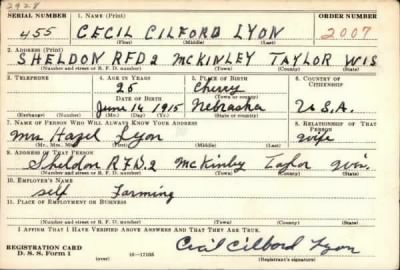 2928
SERIAL NUMBER 1. NAME (Print) ORDER NUMBER
455 CECIL CILFORD LYON 2007
(First) (Middle) (Last)
2. ADDRESS (Print)
SHELDON RFD 2 MCKINLEY TAYLOR WIS
(Number and street or R. F. D. number) (Town) (County) (State)
3. TELEPHONE 4. AGE IN YEARS 5. PLACE OF BIRTH 6. COUNTRY OF CITIZENSHIP
25 Cherry
DATE OF BIRTH (Town or county)
June 14 1915 Nebraska U.S.A.
(Exchange) (Number) (Mo.) (Day) (Yr.) (State or country)
7. NAME OF PERSON WHO WILL ALWAYS KNOW YOUR ADDRESS 8. RELATIONSHIP OF THAT PERSON
Mrs Hazel Lyon wife
(Mr., Mrs., Miss) (First) (Middle) (Last)
9. ADDRESS OF THAT PERSON
Sheldon R.F.D. 2 McKinley Taylor Wis.
(Number and street or R. F. D. number) (Town) (County) (State)
10. EMPLOYER'S NAME
self Farming
11. PLACE OF EMPLOYMENT OR BUSINESS
(Number and street or R. F. D. number) (Town) (County) (State)
I AFFIRM THAT I HAVE VERIFIED ABOVE ANSWERS AND THAT THEY ARE TRUE.
REGISTRATION CARD
D. S. S. Form 1 (over) 16—17105 Cecil Cilford Lyon
(Registrant's signature)